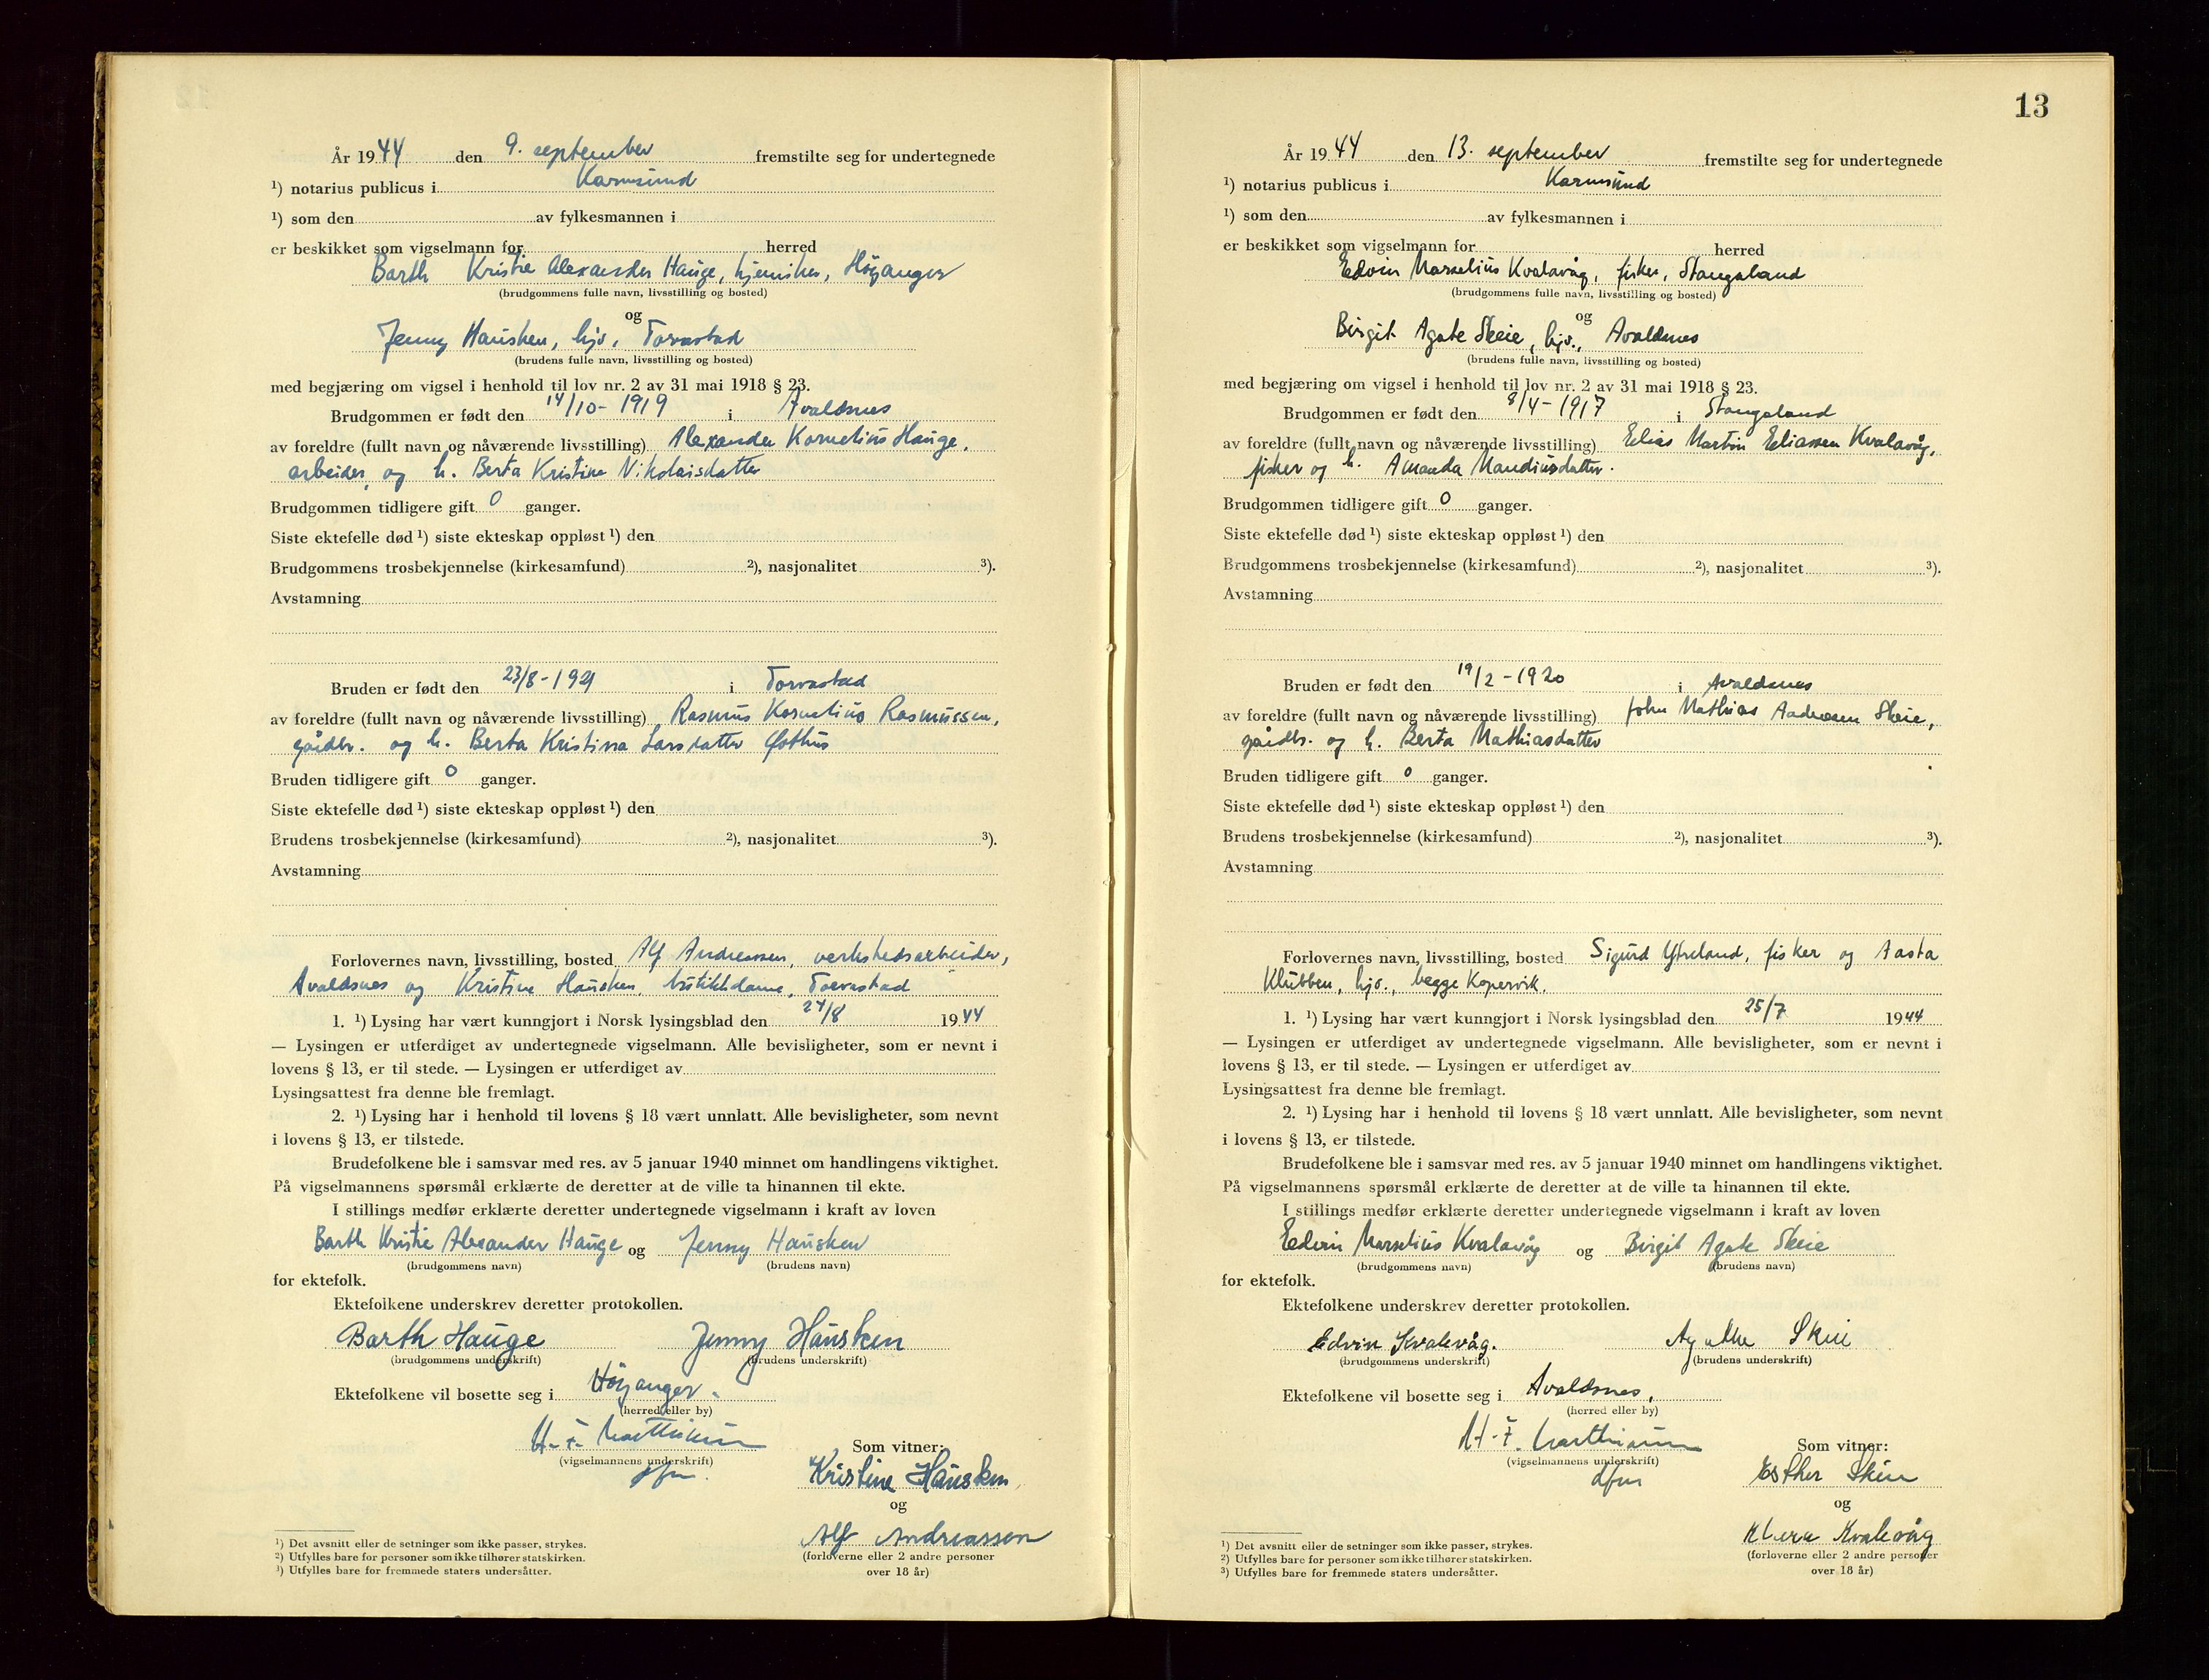 År 1944 den 9. september fremstilte seg for undertegnede
¹) notarius publicus i Karmsund
¹) som den av fylkesmannen i
er beskikket som vigselmann for herred
Barth Kristie Alexander Hauge, kjemiker, Höyanger
(brudgommens fulle navn, livsstilling og bosted)
og
Jenny Hausken, hjv, Torvastad
(brudens fulle navn, livsstilling og bosted)
med begjæring om vigsel i henhold til lov nr. 2 av 31 mai 1918 § 23.
Brudgommen er født den 14/10-1919 i Avaldsnes
av foreldre (fullt navn og nåværende livsstilling) Alexander Kornelius Hauge,
arbeider, og h. Berta Kristine Nikolaisdatter
Brudgommen tidligere gift 0 ganger.
Siste ektefelle død ¹) siste ekteskap oppløst ¹) den
Brudgommens trosbekjennelse (kirkesamfund) ²), nasjonalitet ³).
Avstamning
Bruden er født den 23/8-1921 i Torvastad
av foreldre (fullt navn og nåværende livsstilling) Rasmus Kornelius Rasmussen,
gårdbr. og h. Berta Kristina Larsdatter Østhus
Bruden tidligere gift 0 ganger.
Siste ektefelle død ¹) siste ekteskap oppløst ¹) den
Brudens trosbekjennelse (kirkesamfund) ²), nasjonalitet ³).
Avstamning
Forlovernes navn, livsstilling, bosted Alf Andreassen, verkstedsarbeider,
Avaldsnes og Kristine Hausken, butikkdame, Torvastad
1. ¹) Lysing har vært kunngjort i Norsk lysingsblad den 24/8 1944
— Lysingen er utferdiget av undertegnede vigselmann. Alle bevisligheter, som er nevnt i
lovens § 13, er til stede. — Lysingen er utferdiget av
Lysingsattest fra denne ble fremlagt.
2. ¹) Lysing har i henhold til lovens § 18 vært unnlatt. Alle bevisligheter, som nevnt
i lovens § 13, er tilstede.
Brudefolkene ble i samsvar med res. av 5 januar 1940 minnet om handlingens viktighet.
På vigselmannens spørsmål erklærte de deretter at de ville ta hinannen til ekte.
I stillings medfør erklærte deretter undertegnede vigselmann i kraft av loven
Barth Kristie Alexander Hauge og Jenny Hausken
(brudgommens navn) (brudens navn)
for ektefolk.
Ektefolkene underskrev deretter protokollen.
Barth Hauge Jenny Hausken
(brudgommens underskrift) (brudens underskrift)
Ektefolkene vil bosette seg i Höyanger.
(herred eller by)
Som vitner:
(vigselmannens underskrift)
dfm.
Kristine Hausken
og
Alf Andreassen
(forloverne eller 2 andre personer
over 18 år)
¹) Det avsnitt eller de setninger som ikke passer, strykes.
²) Utfylles bare for personer som ikke tilhører statskirken.
³) Utfylles bare for fremmede staters undersåtter.
13
År 1944 den 13. september fremstilte seg for undertegnede
¹) notarius publicus i Karmsund
¹) som den av fylkesmannen i
er beskikket som vigselmann for herred
Edvin Marselius Kvalavåg, fisker, Stangaland
(brudgommens fulle navn, livsstilling og bosted)
og
Birgit Agate Skeie, hjv., Avaldsnes
(brudens fulle navn, livsstilling og bosted)
med begjæring om vigsel i henhold til lov nr. 2 av 31 mai 1918 § 23.
Brudgommen er født den 8/4-1917 i Stangaland
av foreldre (fullt navn og nåværende livsstilling) Elias Martin Eliassen Kvalavåg,
fisker og h. Amanda Mandiusdatter.
Brudgommen tidligere gift 0 ganger.
Siste ektefelle død ¹) siste ekteskap oppløst ¹) den
Brudgommens trosbekjennelse (kirkesamfund) ²), nasjonalitet ³).
Avstamning
Bruden er født den 19/2-1920 i Avaldsnes
av foreldre (fullt navn og nåværende livsstilling) John Mathias Andreasen Skeie,
gårdbr. og h. Berta Mathiasdatter
Bruden tidligere gift 0 ganger.
Siste ektefelle død ¹) siste ekteskap oppløst ¹) den
Brudens trosbekjennelse (kirkesamfund) ²), nasjonalitet ³).
Avstamning
Forlovernes navn, livsstilling, bosted Sigurd Ytreland, fisker og Aasta
Klubben, hjv., begge Kopervik.
1. ¹) Lysing har vært kunngjort i Norsk lysingsblad den 25/7 1944
— Lysingen er utferdiget av undertegnede vigselmann. Alle bevisligheter, som er nevnt i
lovens § 13, er til stede. — Lysingen er utferdiget av
Lysingsattest fra denne ble fremlagt.
2. ¹) Lysing har i henhold til lovens § 18 vært unnlatt. Alle bevisligheter, som nevnt
i lovens § 13, er tilstede.
Brudefolkene ble i samsvar med res. av 5 januar 1940 minnet om handlingens viktighet.
På vigselmannens spørsmål erklærte de deretter at de ville ta hinannen til ekte.
I stillings medfør erklærte deretter undertegnede vigselmann i kraft av loven
Edvin Marselius Kvalavåg og Birgit Agate Skeie
(brudgommens navn) (brudens navn)
for ektefolk.
Ektefolkene underskrev deretter protokollen.
Edvin Kvalevåg. Agathe Skeie
(brudgommens underskrift) (brudens underskrift)
Ektefolkene vil bosette seg i Avaldsnes.
(herred eller by)
Som vitner:
(vigselmannens underskrift)
dfm
Esther Skeie
og
Kvalevåg
(forloverne eller 2 andre personer
over 18 år)
¹) Det avsnitt eller de setninger som ikke passer, strykes.
²) Utfylles bare for personer som ikke tilhører statskirken.
³) Utfylles bare for fremmede staters undersåtter.